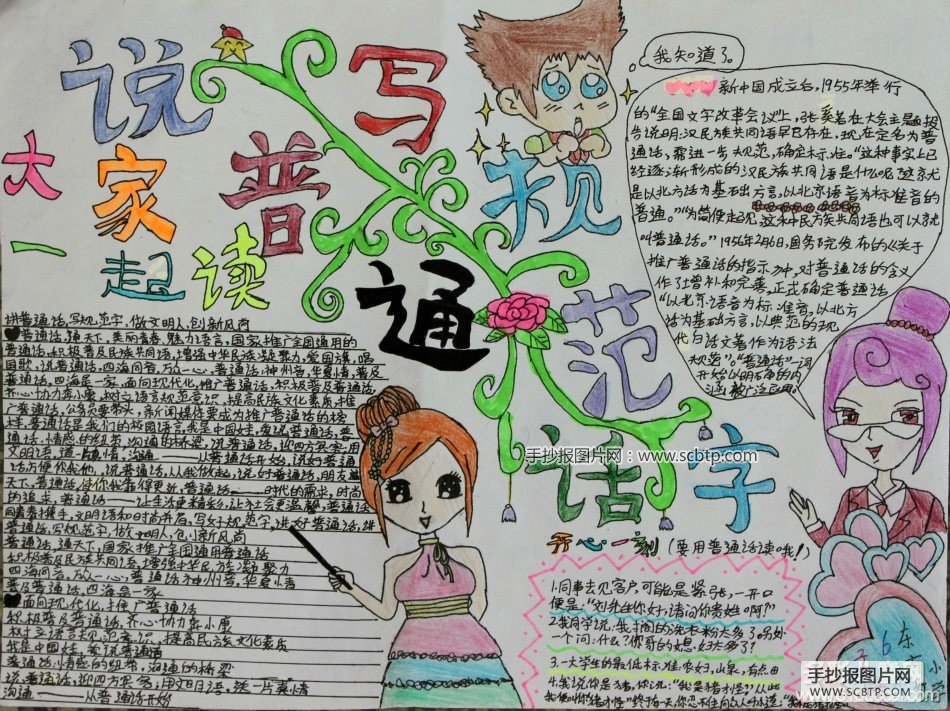 说普通话
写规范字
大家
一起读
我知道了。
新中国成立后,1955年举行
的“全国文字改革会议”上,张奚若在大会主题报
告说明,汉民族共同语早已存在,现在定名为普
通话,需进一步规范,确定标准。“这种事实上已
经逐渐形成的汉民族共同语是什么呢?这就
是以北方话为基础方言,以北京语音为标准音的
普通。”“为简便起见,这种民方族共同语也可以就
叫普通话。”1956年2月6日,国务院发布的《关于
推广普通话的指示》中,对普通话的含义
作了增补和完善,正式确定普通话
“以北京语音为标准音,以北方
话为基础方言,以典范的现
代白话文著作为语法
规范”。“普通话”一词
开始以明确的内
涵被广泛应用。
讲普通话,写规范字,做文明人,创新风尚
普通话,通天下,美丽青春,魅力语言,国家推广全国通用的
普通话,积极普及民族共同语,增强中华民族凝聚力,爱国旗,唱
国歌,说普通话,四海同音,万众一心,普通话:神州音,华夏情,普及
普通话,四海是一家,面向现代化,推广普通话,积极普及普通话,
齐心协力奔小康,树立语言规范意识,提高民族文化素质,推
广普通话,公务员要带头,新闻媒体要成为推广普通话的榜
样,普通话是我们的校园语言,我是中国娃,爱说普通话,普
通话,情感的纽带,沟通的桥梁,说普通话,迎四方宾客,用
文明语,送一片真情,沟通——从普通话开始,说好普通
话方便你我他,说普通话,从我做起,说好普通话,朋友遍
天下,普通话,使你我靠得更近,普通话——时代的需求,时尚
的追求,普通话——让生活更精彩,让社会更温馨,普通话
同青春携手,文明语和时尚并肩,写好规范字,说好普通话,讲
普通话,写规范字,做文明人,创新风尚
普通话,通天下,国家推广全国通用普通话
积极普及民族共同语,增强中华民族凝聚力
四海同音,万众一心,普通话,神州音,华夏情
普及普通话,四海是一家
面向现代化,推广普通话
积极普及普通话,齐心协力奔小康
树立语言规范意识,提高民族文化素质
我是中国娃,爱说普通话
普通话:情感的纽带,沟通的桥梁
说普通话,迎四方宾客;用文明语,送一片真情
沟通——从普通话开始
手抄报图片网:www.scbtp.com
开心一刻(要用普通话读哦!)
1.同事去见客户,可能是紧张,一开口
便是:“刘先生你好,请问你贵姓啊?”
3.一大学生的最低标准:农妇,山泉,有点田
手抄报图片网
WWW.SCBTP.COM